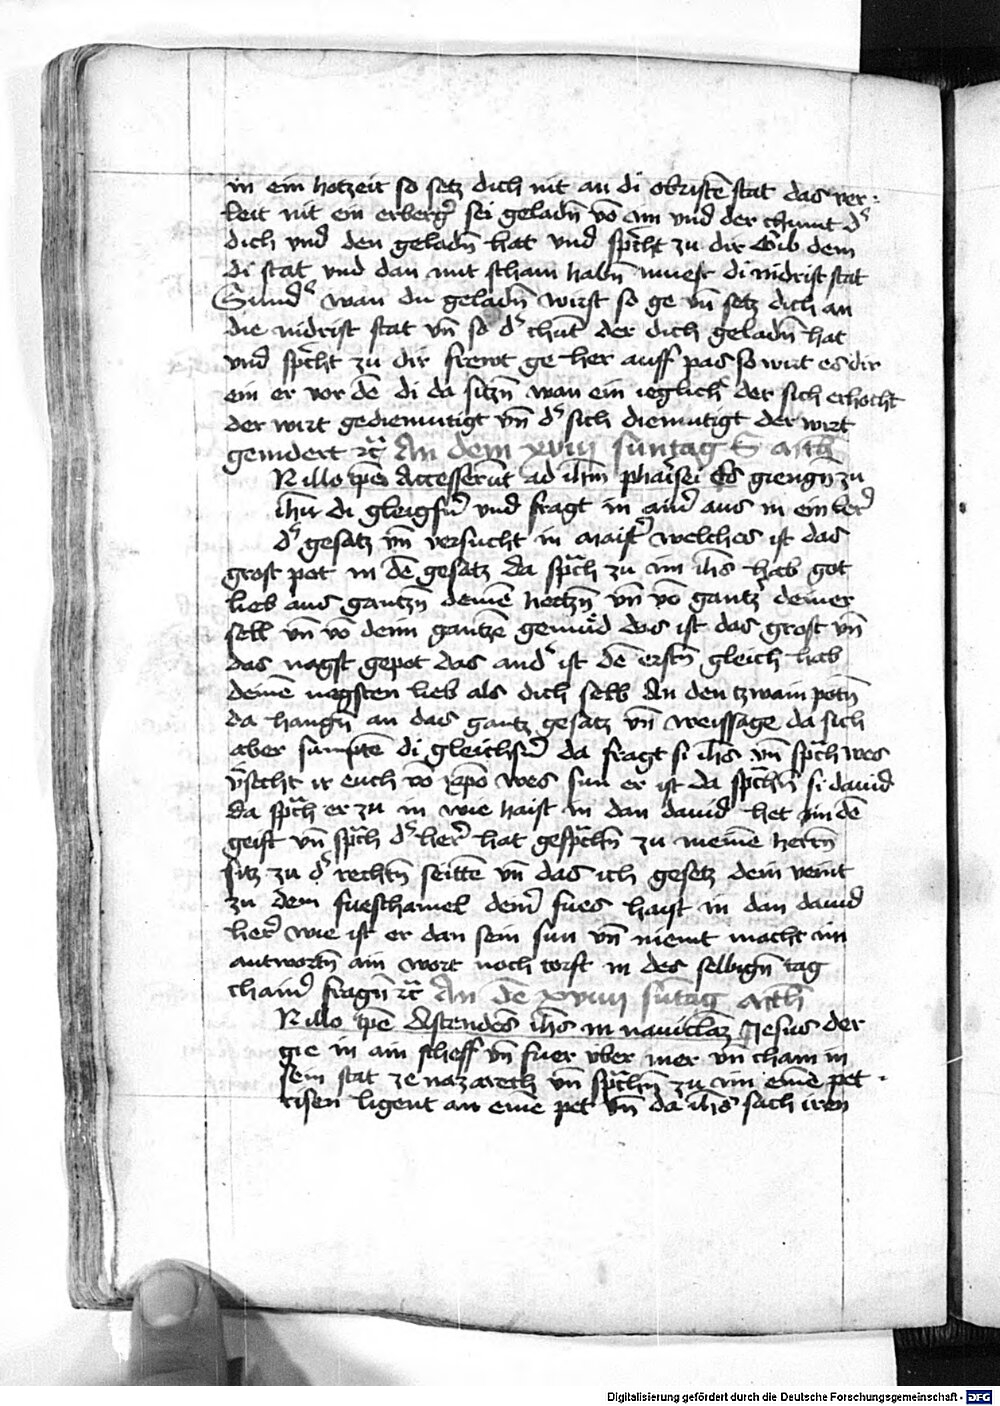 in ein hotzeit so setz dich nit an di obristē stat das ver
leit nit ein erberg̉ sei geladn̄ vō im vnd der chumt d̉
dich vnd den geladn̄ hat vnd sprͣcht zu dir Gib dem
di stat vnd dan mit scham habn̄ muest di nidrist stat
Sund̉ wan du geladn̄ wirst so ge vn̄ setz dich an
die nidrist stat vn̄ so d̉ chūt der dich geladn̄ hat
vnd sprͣcht zu dir frewt ge her auff pas so wirt es dir
ein er vor dē di da sitzn̄ wan ein ieglich̉ der sich erhocht
der wirt gediemutigt vn̄ d̉ sich diemutigt der wirt
gemdert ꝛc̄ An dem xviii suntag S math
N illo tpē Accesserūt ad ihm̄ pharisei Es giengn̄ zu
ihū di gleigsn̉ vnd fragt in ain̉ aus in ein ler̉
d̉ gesatz vn̄ versucht in maist̉ welches ist das
grost pot in dē gesatz da sprͣch zu im ihs̄ hab got
lieb aus gantzn̄ deinē hertzn̄ vn̄ vō gantz̉ deiner
sell vn̄ vō deim gantzē gemüd das ist das grost vn̄
das nagst gepot das and̉ ist dē erstn̄ gleich hab
deinē nagsten lieb als dich selb An den tzwain potn̄
da hangn̄ an das gantz gesatz vn̄ weissage da sich
aber samptē di gleichsn̉ da fragt si ihs̄ vn̄ sprͣch wes
v̈secht ir euch vō xp̄o wes sun er ist da sprͣchn̄ si dauid
da sprͣch er zu in wie haist in dan dauid het in dē
geist vn̄ sprͣch d̉ her̉ hat gesprͣchn̄ zu meinē herrn̄
sitz zu d̉ rechtn̄ seittē vn̄ das ich gesetz dein veint
zu dem fueschamel dein̉ fues haist in dan dauid
her̉ wie ist er dan sein sun vn̄ niemt macht im
antwortn̄ ain wort noch torst in des selbign̄ tag
chain̉ fragn̄ ꝛc̄ An dē xviiii sūtag math
N illo tpē Ascendēs ihs̄ in nauiclaꝫ Jesus der
gie in ain scheff vn̄ fuer vber mer vn̄ cham in
sein stat ze nazareth vn̄ sprͣchn̄ zu im einē pet
risen ligent an einē pet vn̄ da ihs̄ sach iren
Digitalisierung gefördert durch die Deutsche Forschungsgemeinschaft - DFG